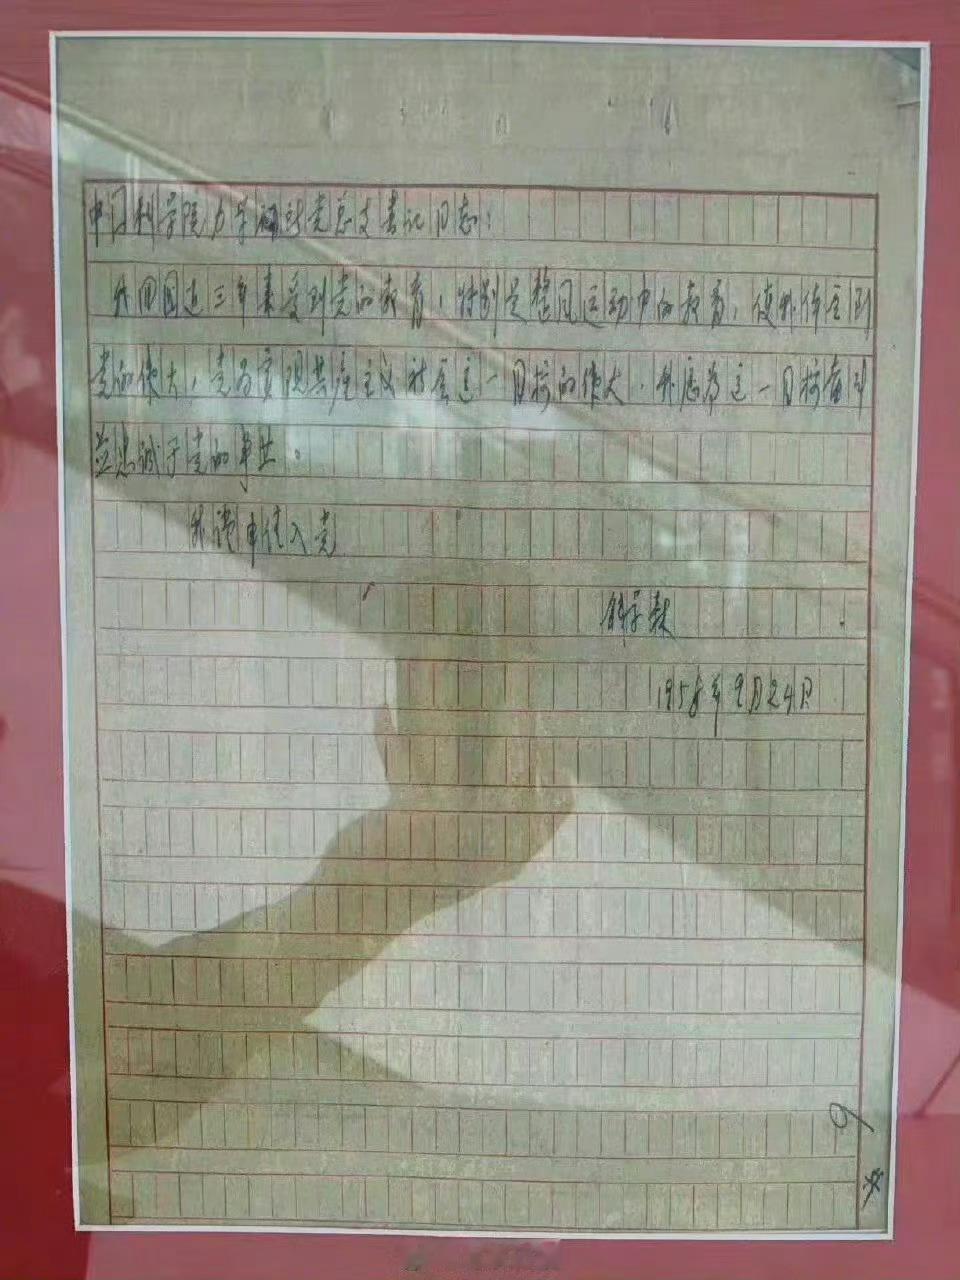 中国科学院力学研究所党总支书记同志：
我回国近三年来受到党的教育，特别是整风运动中的教育，使我体会到
党的伟大，党为实现共产主义社会这一目标的伟大．我愿为这一目标奋斗
并忠诚于党的事业。
我谨申请入党
钱学森
1958年9月24日
9